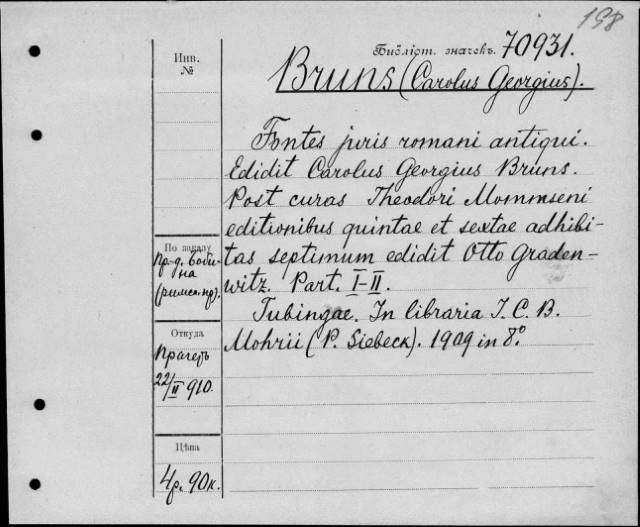 198
Библіот. значекъ. 70931.
Инв.
№
Bruns (Carolus Georgius).
Fontes juris romani antiqui.
Edidit Carolus Georgius Bruns.
Post curas Theodori Mommseni
editionibus quintae et sextae adhibi-
tas septimum edidit Otto Graden-
witz. Part. I-II.
Tubingae. In libraria I. C. B.
Mohrii (P. Siebeck). 1909 in 8°
По заказу
Пр-д. Боби-
на
(римск. пр).
Откуда
Прагеръ
22/II 910.
Цѣна
4р. 90к.